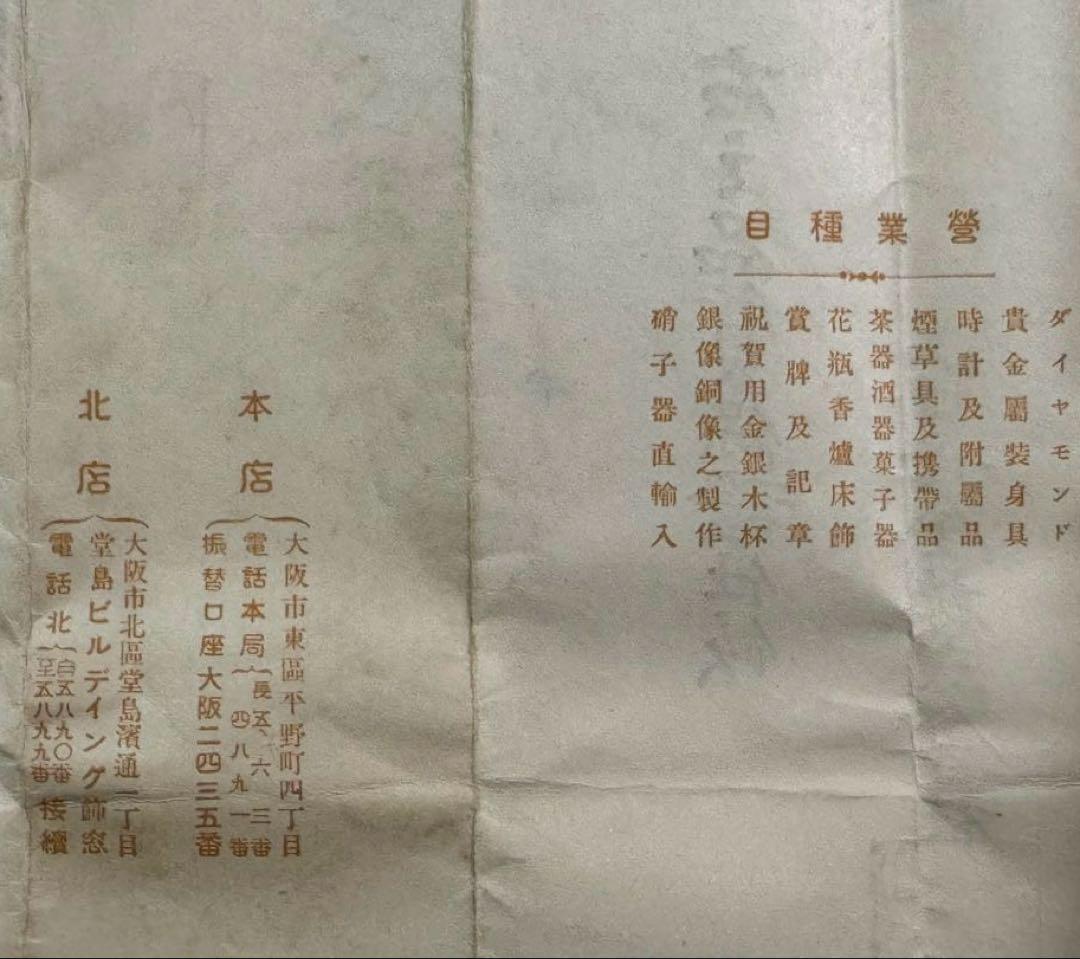 營業種目
ダイヤモンド
貴金屬裝身具
時計及附屬品
煙草具及携帶品
茶器酒器菓子器
花瓶香爐床飾
賞牌及記章
祝賀用金銀木杯
銀像銅像之製作
硝子器直輸入
本店
大阪市東區平野町四丁目
電話本局
長五、六三番
四八九一番
振替口座大阪二四三五番
北店
大阪市北區堂島濱通一丁目
堂島ビルデイング飾窓
電話北
自五八九〇番
至五八九九番
接續